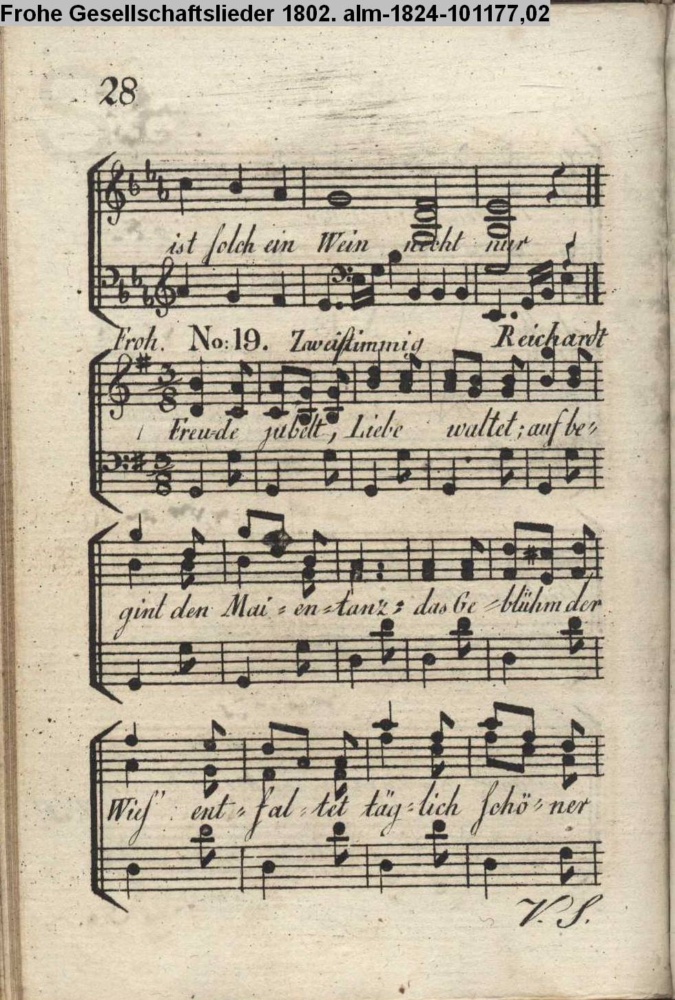 Frohe Gesellschaftslieder 1802. alm-1824-101177,02
28
ist solch ein Wein nicht nur
Froh. No: 19. Zweistimmig Reichardt
3/8 Freude jubelt, Liebe waltet; auf be-
3/8
gint den Mai-en-tanz: das Ge-blühm der
Wies' ent-fal-tet täg-lich schö-ner
V. S.